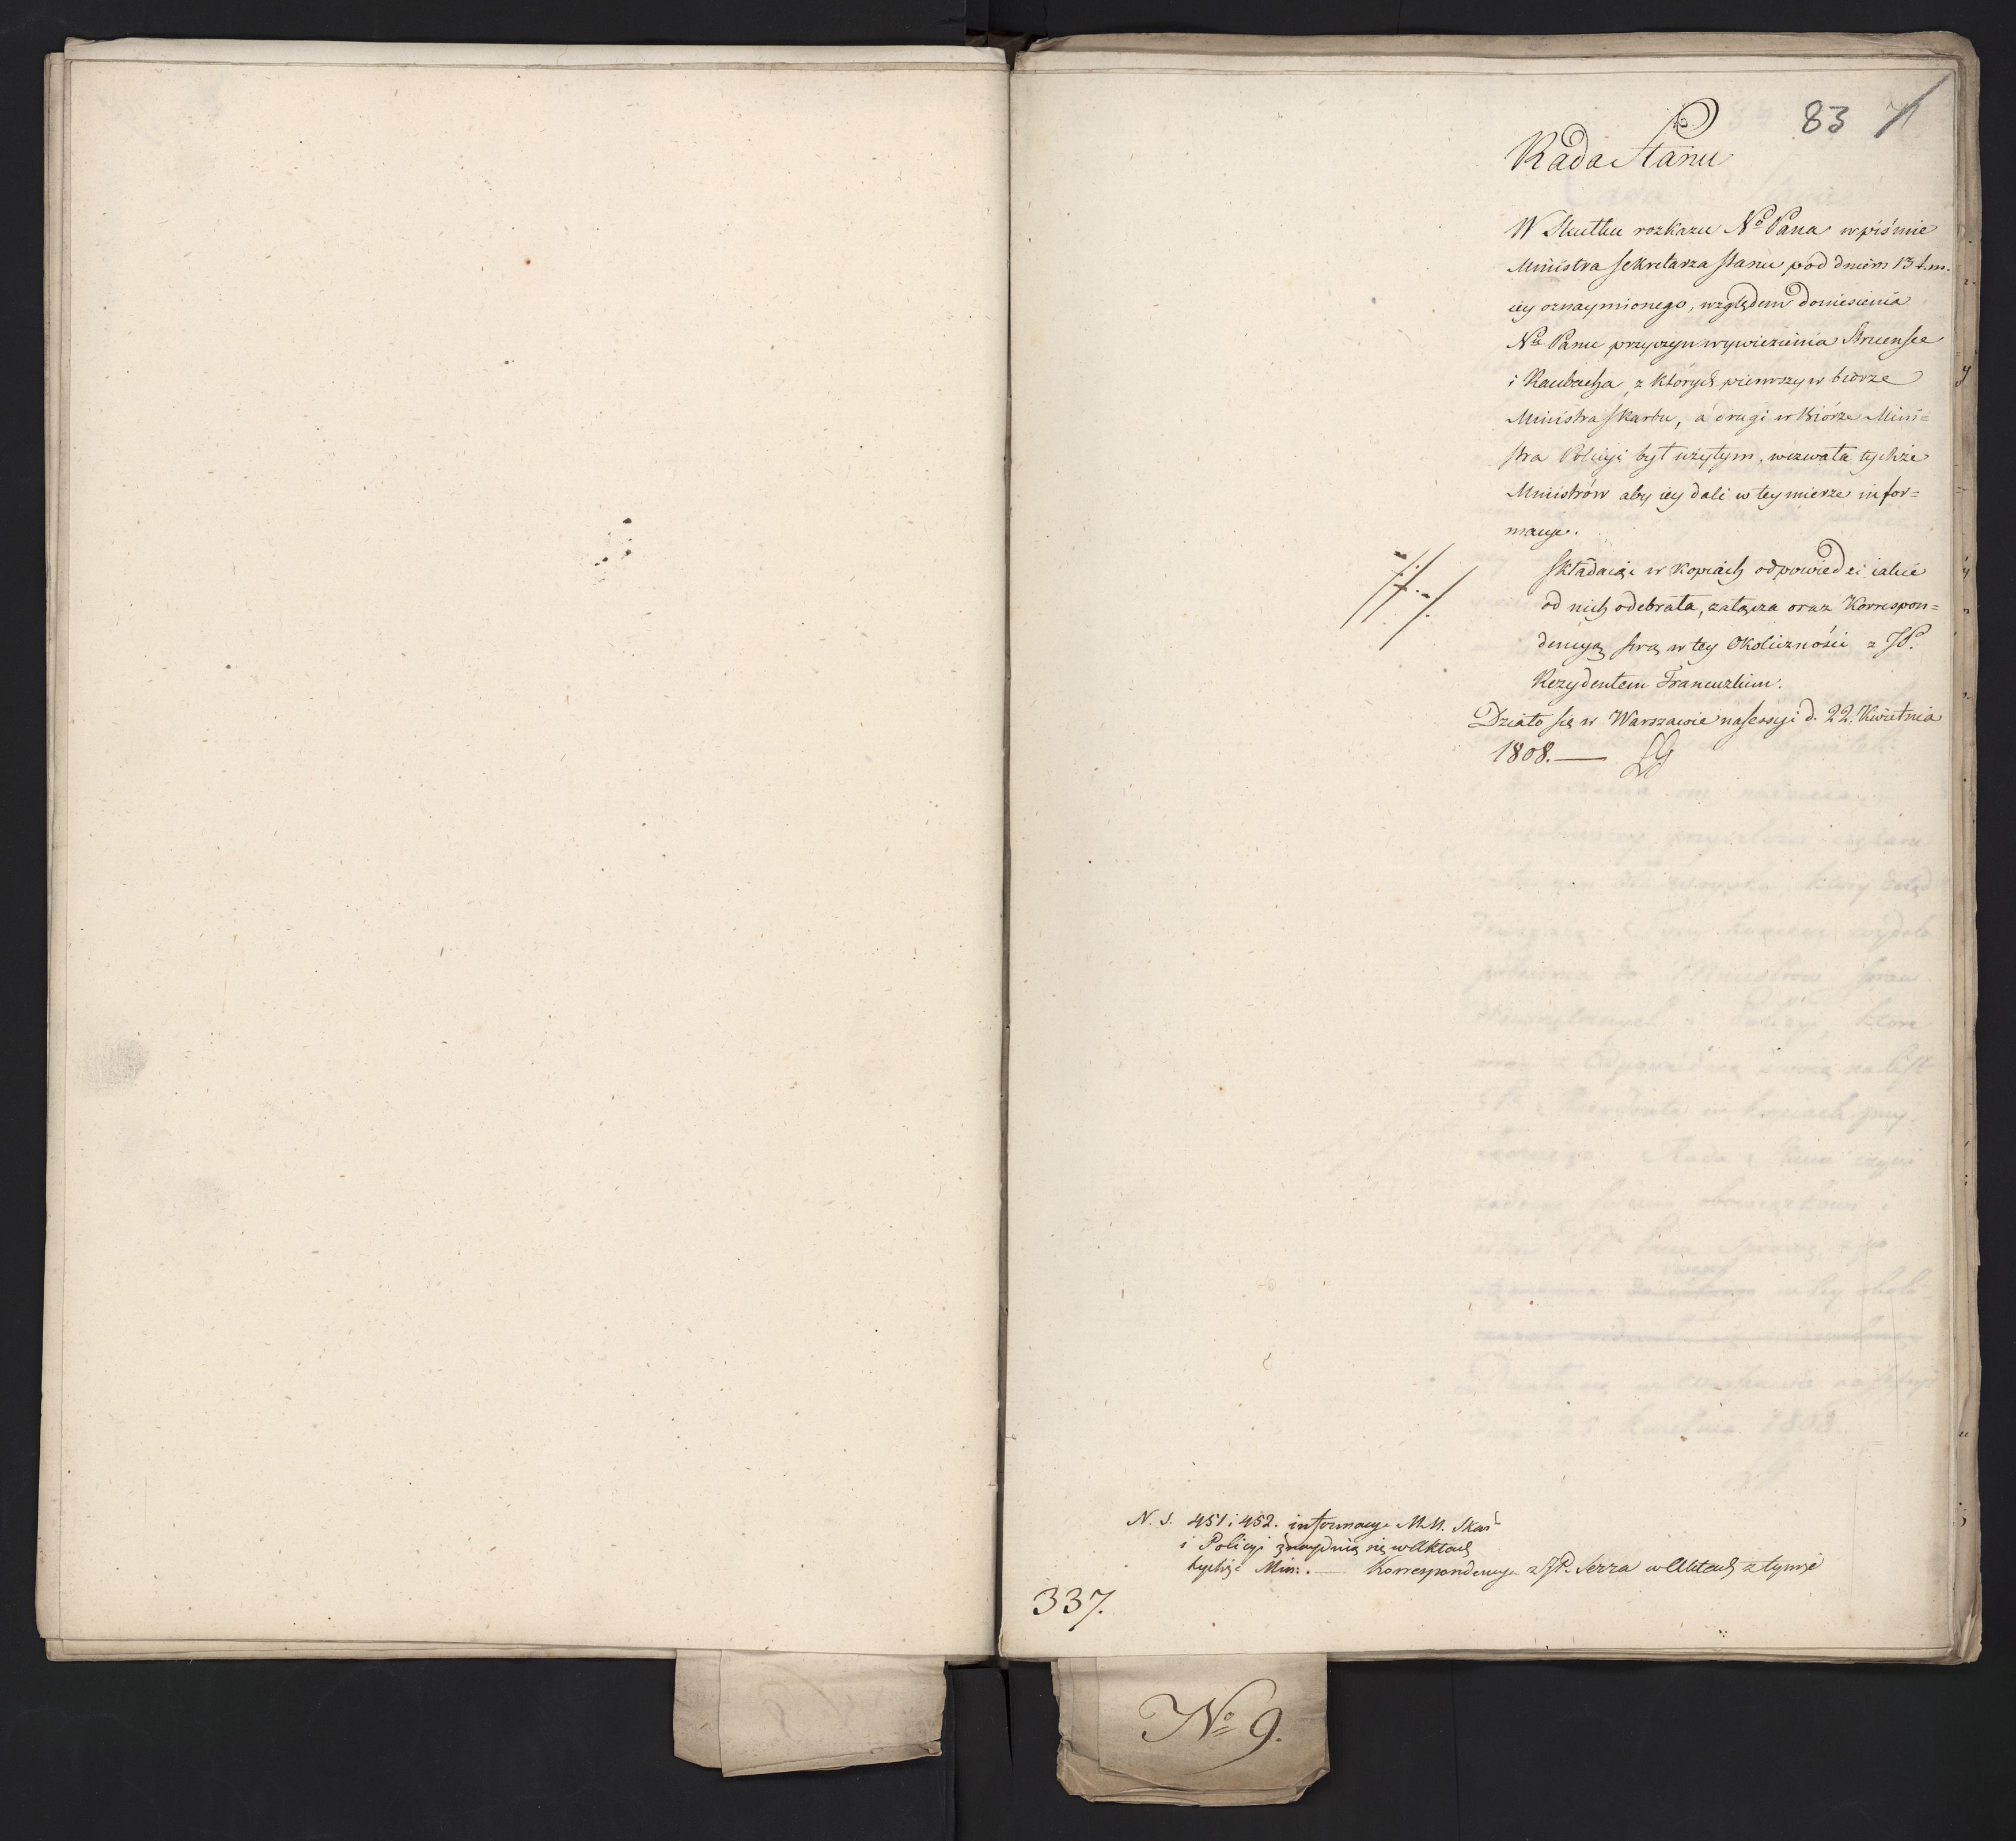 83
Rada Stanu
W Skutku rozkazu Nº Pana w piśmie
Ministra Sekretarza Stanu pod dniem 13 t. m.
iey oznaymionego, względem doniesienia
Nº Panu przyczyn wywiezienia Struensee
i Raubacha, z których pierwszy w biórze
Ministra Skarbu, a drugi w Biórze Mini=
stra Policyi był użytym, wezwała tychże
Ministrów aby iey dali w tey mierze infor=
macye.
Składaiąc w kopiach odpowiedzi iakie
od nich odebrała, załącza oraz Korrespon=
dencyą swą w tey Okoliczności z JP.
Rezydentem Francuzkim.
Działo się w Warszawie na Sessyi d. 22. Kwietnia
1808. —
N. S. 451 i 452. informacye MM. Skar
i Policyi znaydują się w Aktach
tychże Min. — Korrespondencya z JP. Serra w Aktach z tymże
337.
Nº 9.